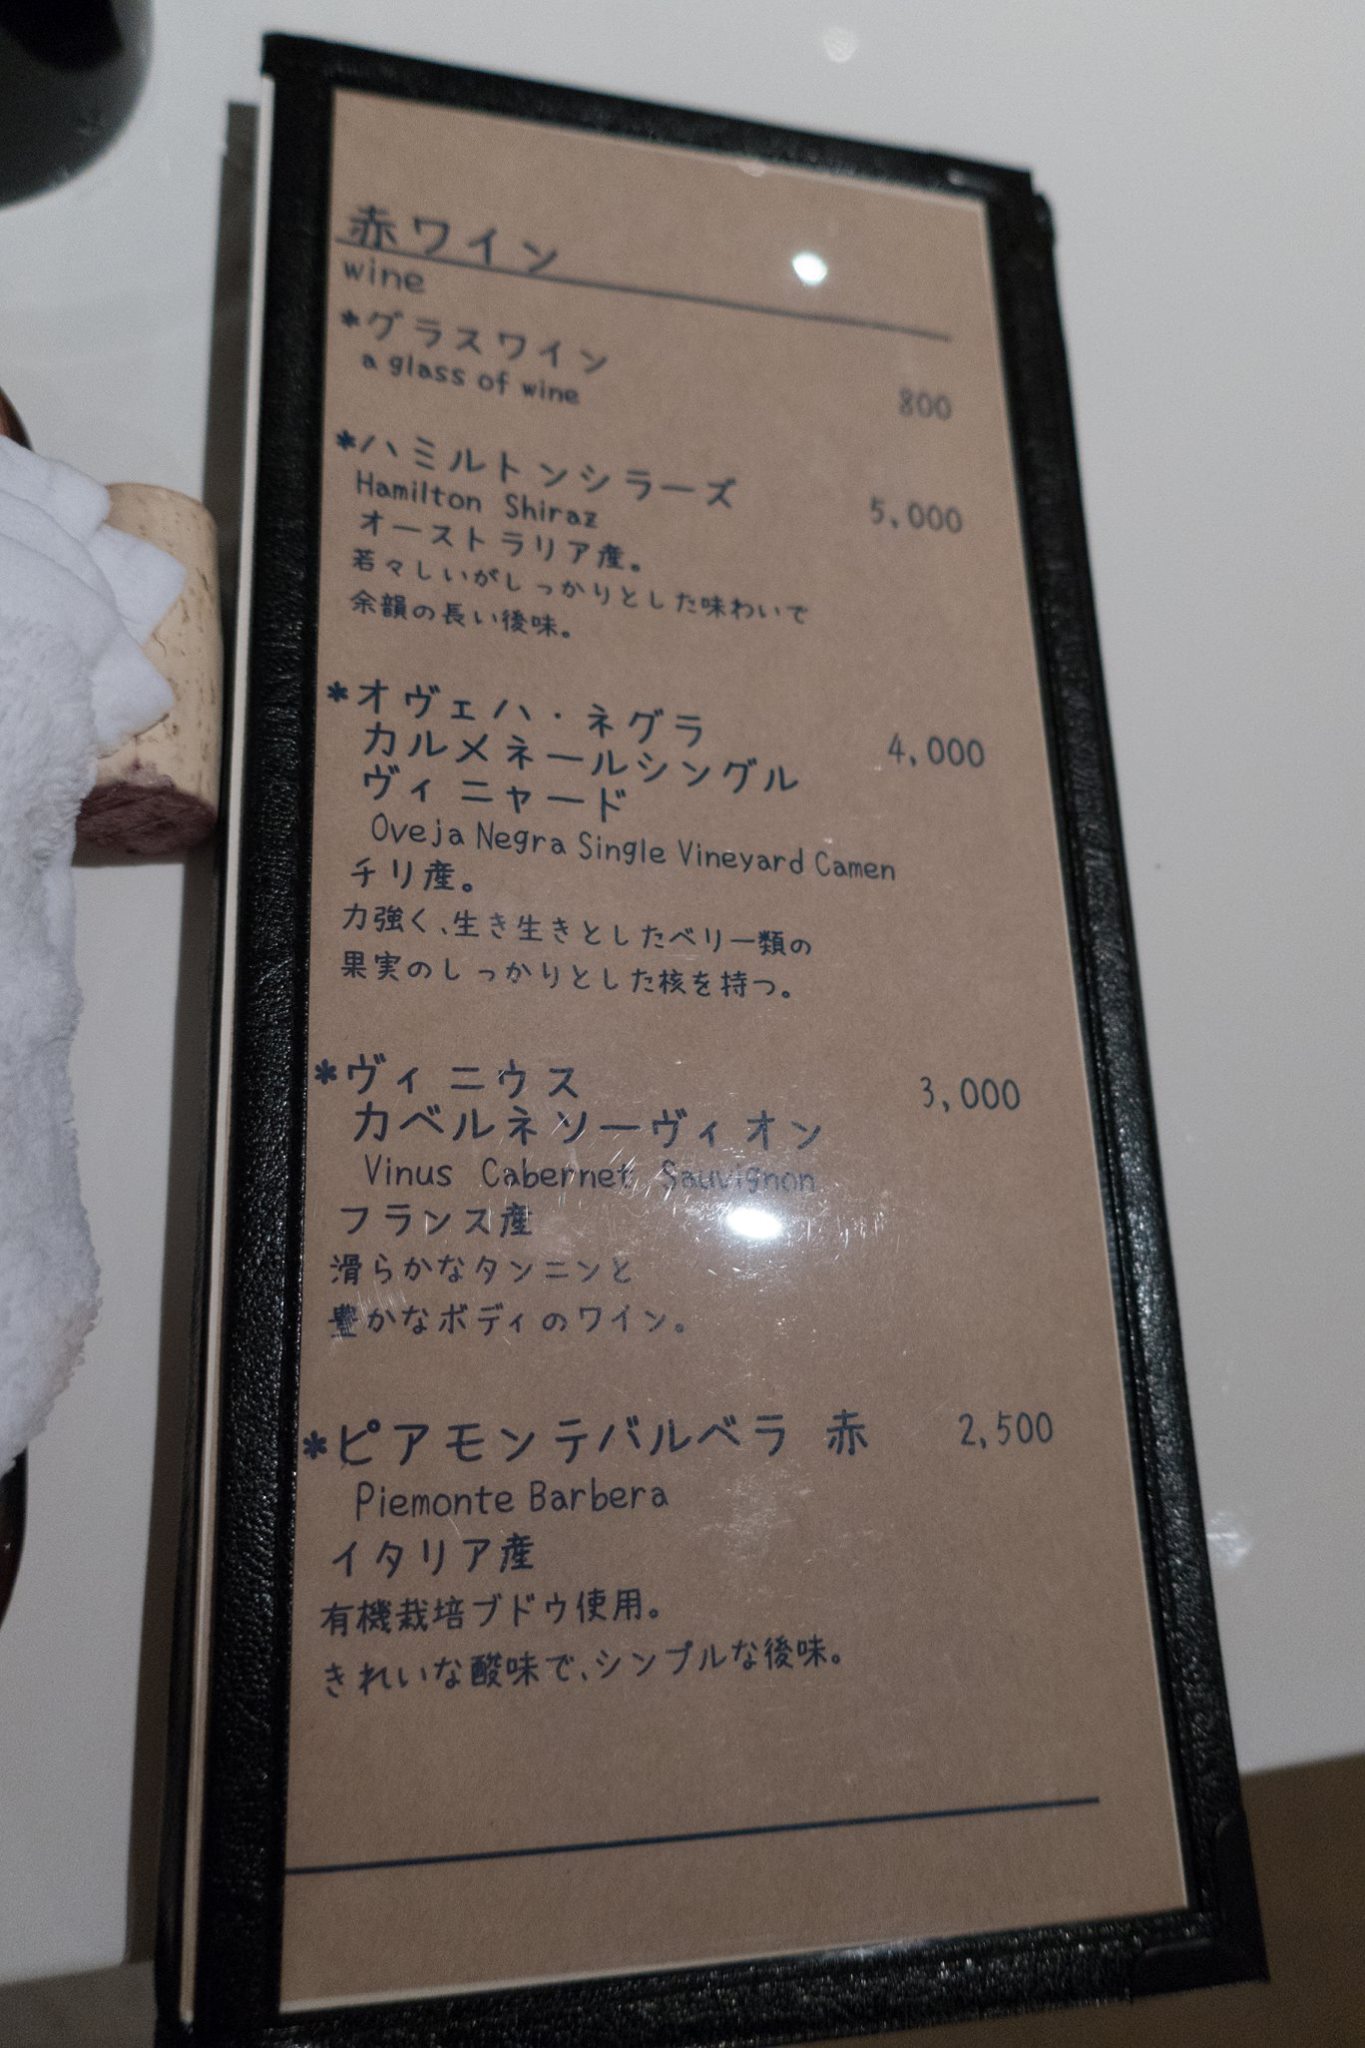 赤ワイン
wine
*グラスワイン
a glass of wine
800
*ハミルトンシラーズ
5,000
Hamilton Shiraz
オーストラリア産。
若々しいがしっかりとした味わいで
余韻の長い後味。
*オヴェハ・ネグラ
4,000
カルメネールシングル
ヴィニャード
Oveja Negra Single Vineyard Camen
チリ産。
力強く、生き生きとしたベリー類の
果実のしっかりとした核を持つ。
*ヴィニウス
3,000
カベルネソーヴィオン
Vinus Cabernet Sauvignon
フランス産
滑らかなタンニンと
豊かなボディのワイン。
*ピアモンテバルベラ 赤
2,500
Piemonte Barbera
イタリア産
有機栽培ブドウ使用。
きれいな酸味で、シンプルな後味。